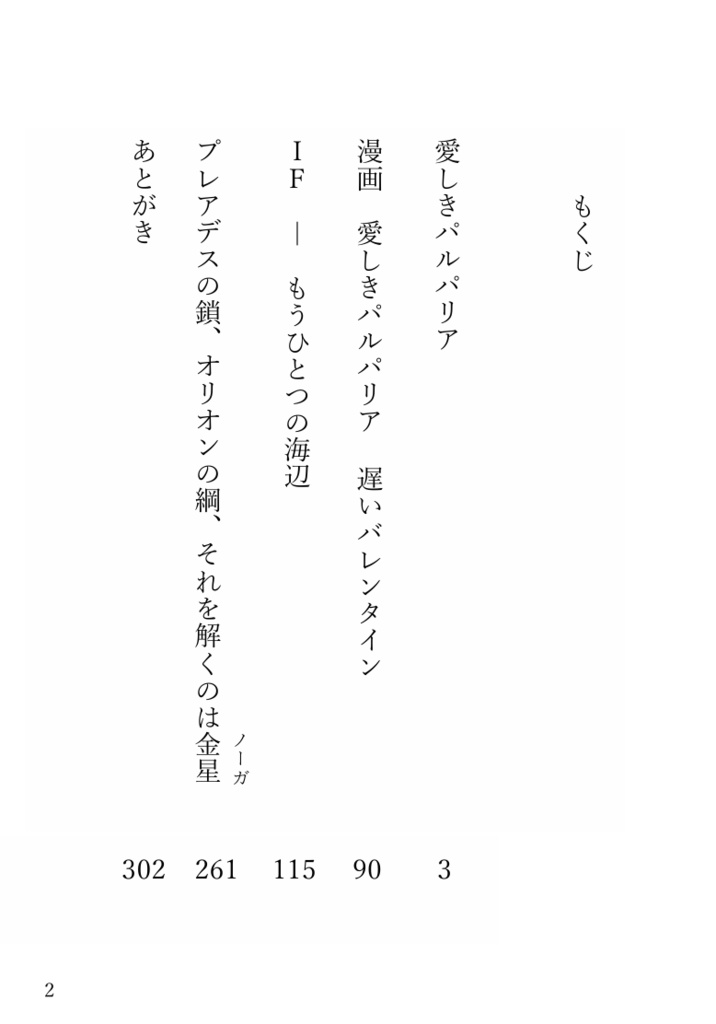 もくじ
愛しきパルパリア 3
漫画 愛しきパルパリア 遅いバレンタイン 90
IF ― もうひとつの海辺 115
プレアデスの鎖、オリオンの綱、それを解くのは金星 261
ノーガ
あとがき 302
2